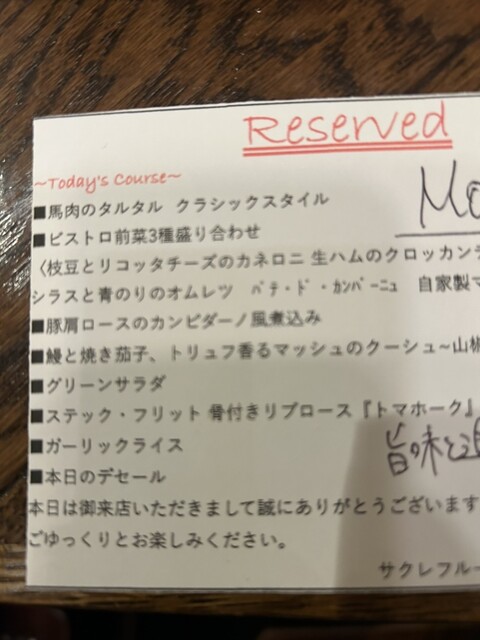 Reserved
~Today's Course~
■馬肉のタルタル クラシックスタイル
■ビストロ前菜3種盛り合わせ
〈枝豆とリコッタチーズのカネロニ 生ハムのクロッカン
シラスと青のりのオムレツ ﾊﾟﾃ・ﾄﾞ・ｶﾝﾊﾟｰﾆｭ 自家製
■豚肩ロースのカンピダーノ風煮込み
■鰻と焼き茄子、トリュフ香るマッシュのクーシュ~山椒
■グリーンサラダ
■ステック・フリット 骨付きリブロース『トマホーク』
■ガーリックライス
旨味と
■本日のデセール
本日は御来店いただきまして誠にありがとうございます
ごゆっくりとお楽しみください。
サクレフルー